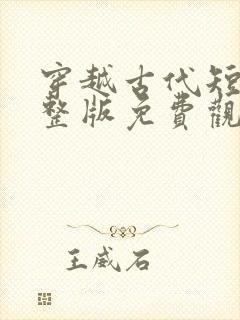 穿越古代短
整版免費觀
王威石